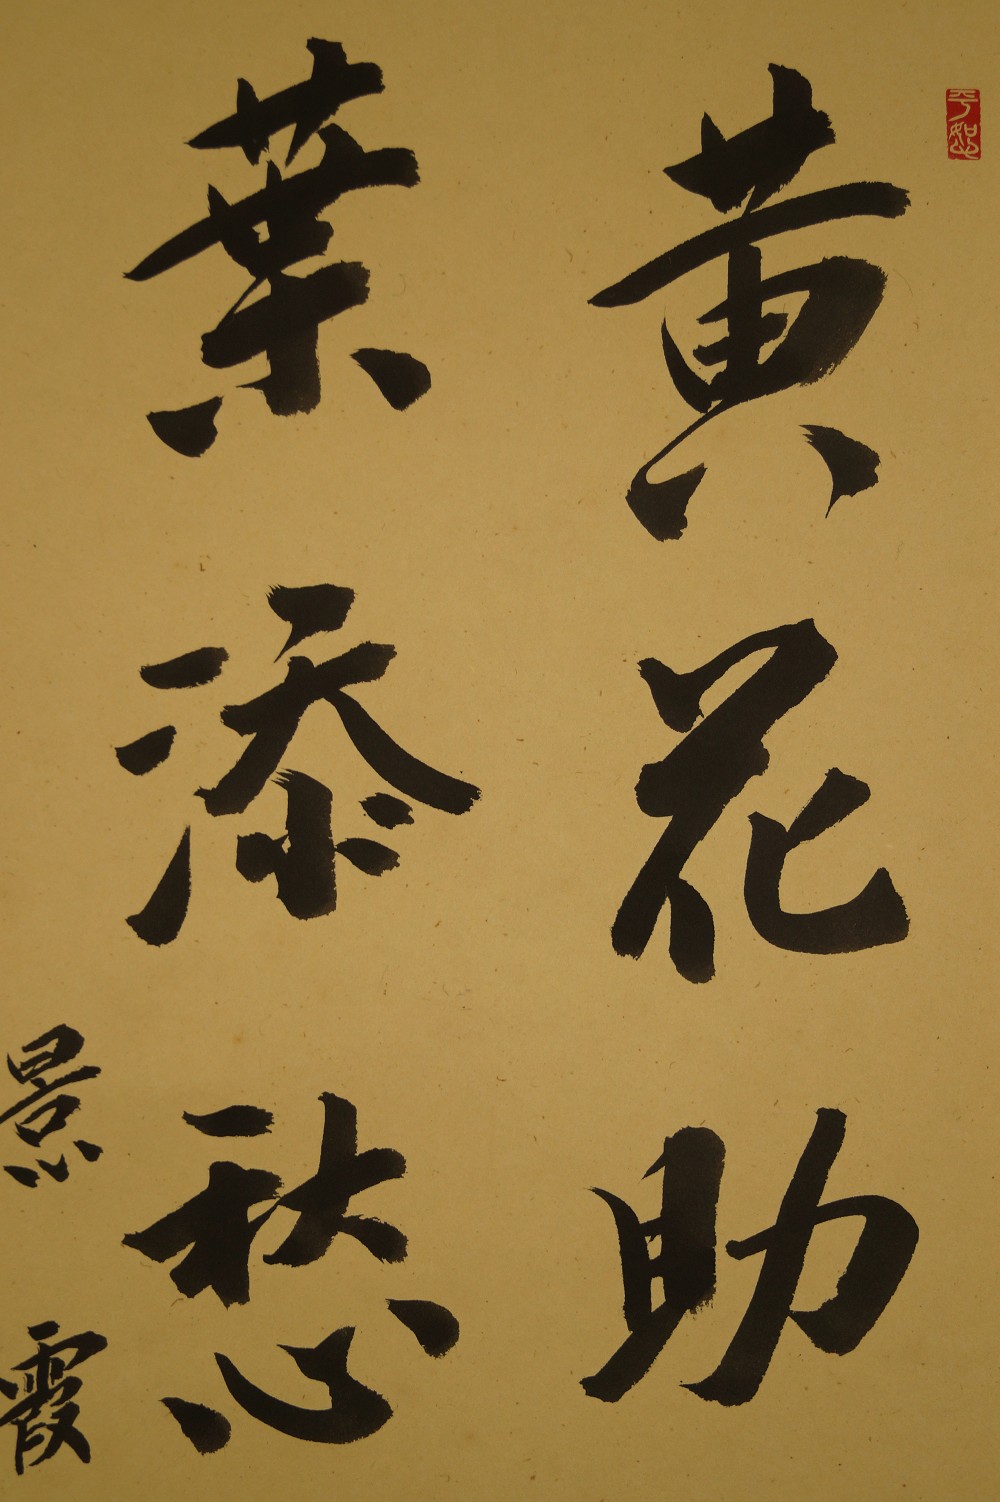 黄花助
葉添愁
景霞